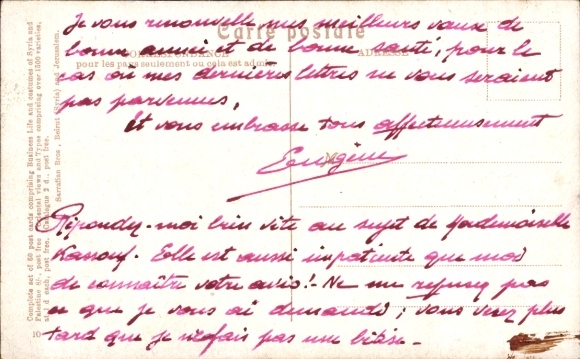 Carte postale
CORRESPONDANCE
ADRESSE
pour les pays seulement où cela est admis.
Je vous renouvelle mes meilleurs vœux de
bonne année et de bonne santé, pour le
cas où mes dernières lettres ne vous seraient
pas parvenues,
Et vous embrasse tous affectueusement
Eugène
Répondez-moi bien vite au sujet de Mademoiselle
Kassouf. Elle est aussi impatiente que moi
de connaître votre avis! - Ne me refusez pas
ce que je vous ai demandé; vous verez plus
tard que je n'fais pas une bêtise -
Complete set of 60 post cards comprising Business Life and costumes of Syria and
Palestine 6/-, post free Oriental views and Types comprising over 1500 varieties,
at 1 d each, post free. Catalogue 2 d., post free.
Sarrafian Bros, Beirut (Syria) and Jerusalem.
10